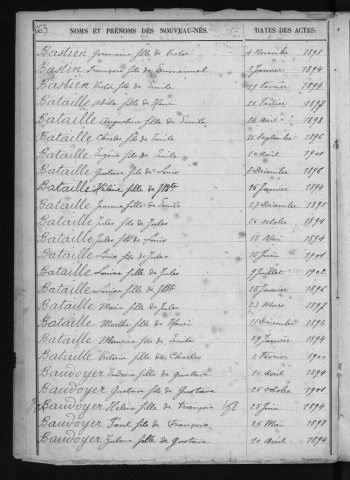 NOMS ET PRÉNOMS DES NOUVEAU-NÉS. DATES DES ACTES.
Bastien Germaine fille de Victor 4 Novembre 1898
Bastin François fils de Emmanuel Janvier 1894
Bastien Victor fils de Emile 19 Février 1894
Bataille Adèle fille de Henri 22 Février 1897
Bataille Augustine fille de Emile 1898
Bataille Charles fils de Emile Septembre 1896
Bataille Eugène fils de Emile 10 Août 1901
Bataille Gustave fils de Louis 2 Décembre 1896
Bataille Hélène fille de 16 Janvier 1894
Bataille Jeanne fille de Emile 27 Décembre 1895
Bataille Jules fils de Jules 26 Octobre 1894
Bataille Jules fils de Louis 18 Mai 1894
Bataille Louis fils de Jules 15 Juin 1901
Bataille Louise fille de Jules 9 Juillet 1902
Bataille Louise fille de 16 Janvier 1896
Bataille Marie fille de Jules 23 Mars 1897
Bataille Marthe fille de Henri 11 Décembre 1893
Bataille Maurice fils de Emile 29 Janvier 1894
Bataille Victoria fille de Charles 2 Février 1900
Baudoyer fille de Gustave 10 Août 1894
Baudoyer Gustave fils de Gustave 26 Octobre 1901
Baudoyer Hélène fille de François 25 Juin 1894
Baudoyer Paul fils de François 26 Mai 1898
Baudoyer fille de Gustave 10 Août 1894